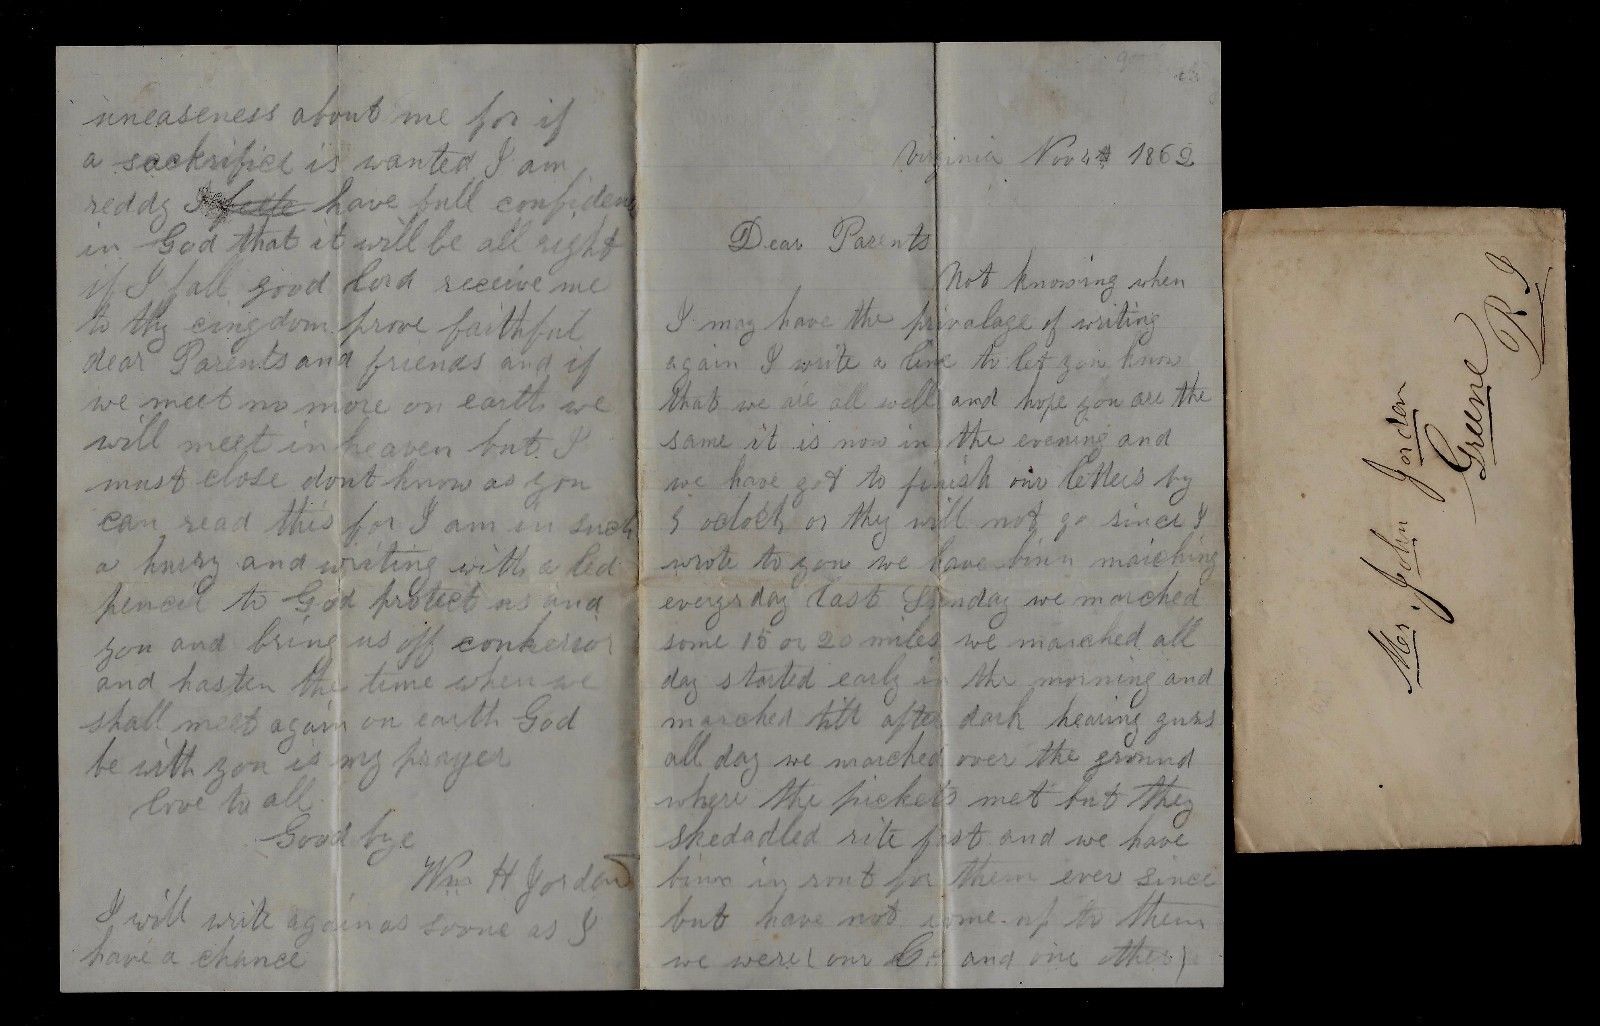 Virginia Nov 4th 1862
Dear Parents
Not knowing when
I may have the privalage of writing
again I write a line to let you know
that we are all well and hope you are the
same it is now in the evening and
we have got to finish our letters by
oclock or they will not go since I
wrote to you we have binn marching
everyday last Sunday we marched
some 15 or 20 miles we marched all
day started early in the morning and
marched till after dark hearing guns
all day we marched over the ground
where the pickets met but they
skedadled rite fast and we have
binn in for them ever since
but have not come up to them
we were (our Co and one other)
uneaseness about me for if
a sackrifice is wanted I am
reddy I have full confidence
in God that it will be all right
if I fall good lord receive me
to thy cingdom prove faithful
dear Parents and friends and if
we meet no more on earth we
will meet in heaven but I
must close dont know as you
can read this for I am in such
a hurry and writing with a led
pencil to God protect us and
you and bring us off conkerior
and hasten the time when we
shall meet again on earth God
be with you is my prayer
love to all
Good bye
Wm H Jordan
I will write again as soone as I
have a chance
Mr. John Jordan
Greene
R I